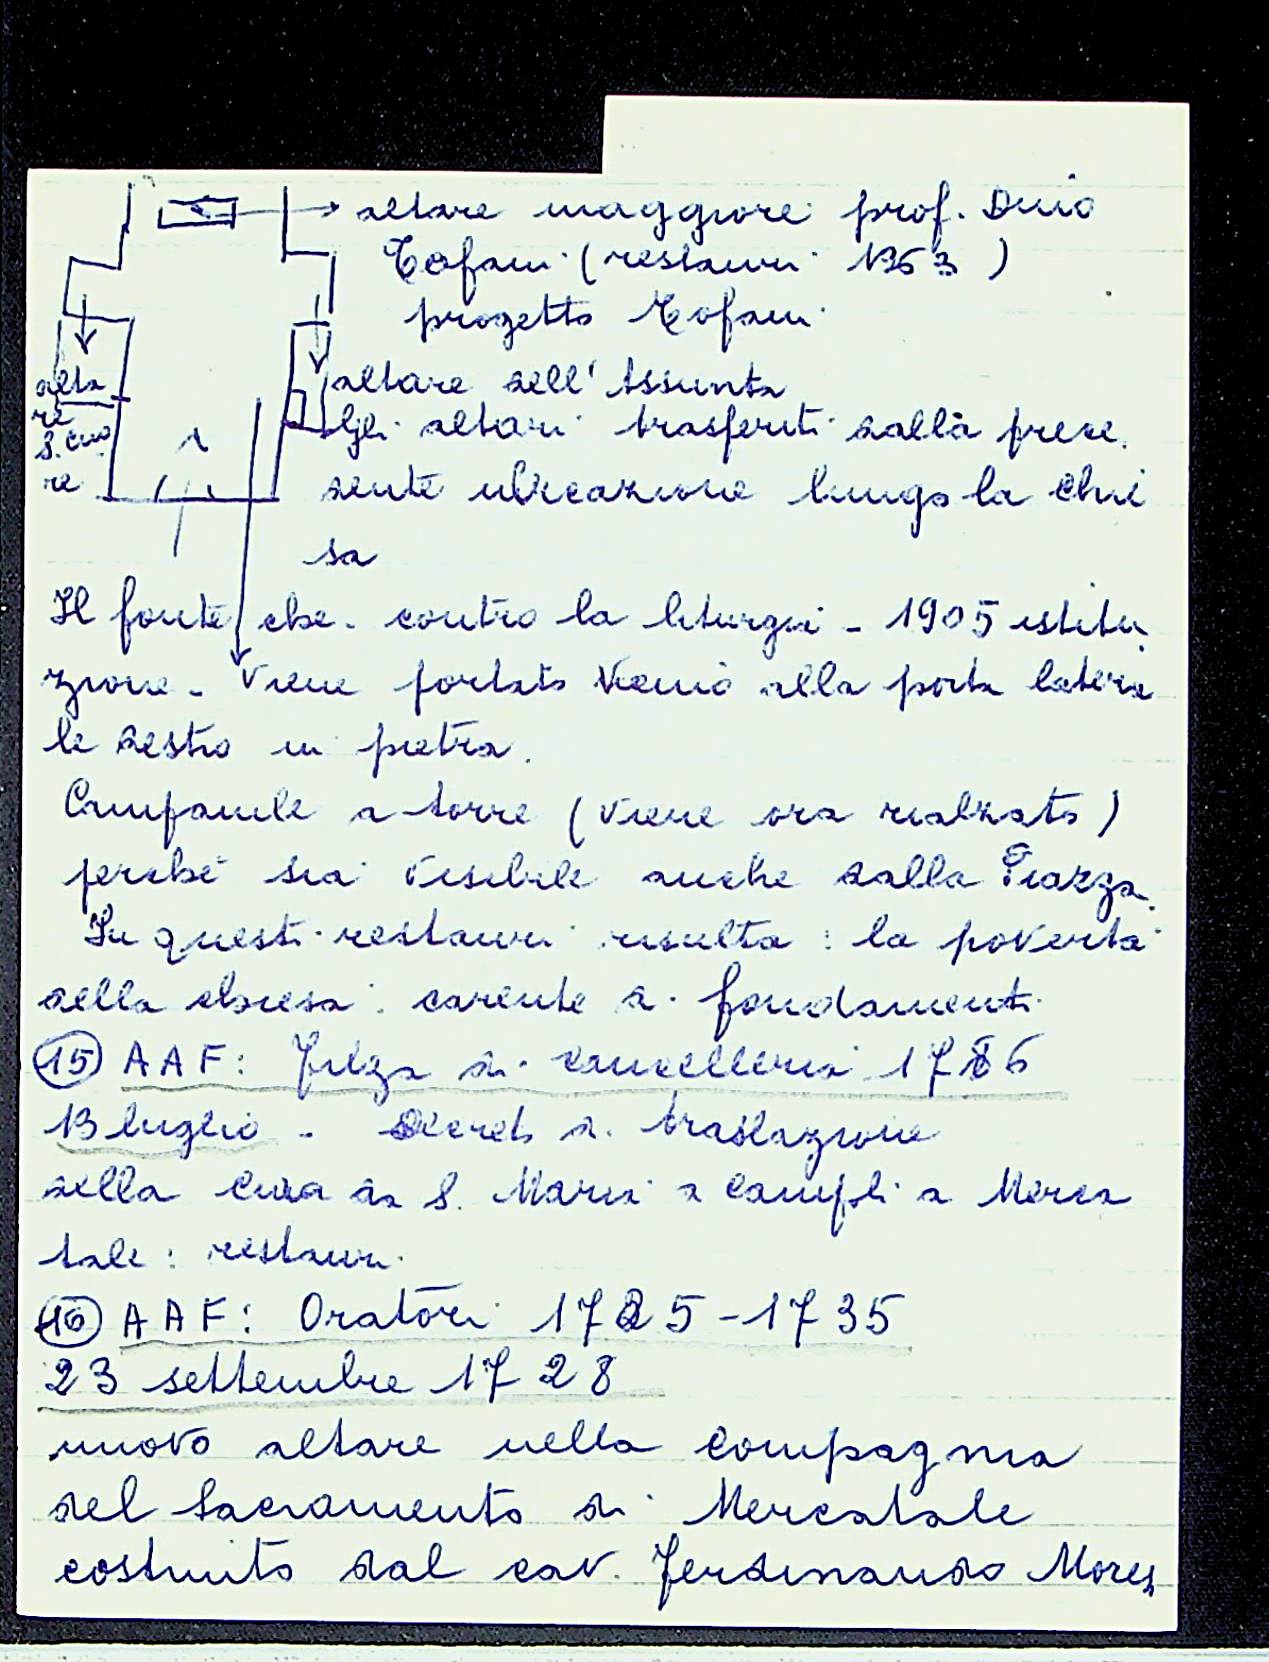 altare maggiore prof. Duio
Tofani (restauri 1963)
progetto Tofani
altare dell'Assunta
alta
re
S. Cuo
re
Gli altari trasferiti dalla pree.
sente ubicazione lungo la chie
sa
Il fonte che - contro la liturgia - 1905 istitu
zione - viene portato vicino alla porta latera
le destro in pietra.
Campanile a torre (viene ora rialzato)
perché sia visibile anche dalla Piazza.
In questi restauri risulta: la povertà
della chiesa: carente di fondamenti
15 AAF: Filza di cancelleria 1786
13 luglio - decreto di traslazione
della cura da S. Maria a Campoli a Merca
tale: restauri
16 AAF: Oratori 1725-1735
23 settembre 1728
nuovo altare nella compagnia
del Sacramento di Mercatale
costruito dal cav. Ferdinando Mores